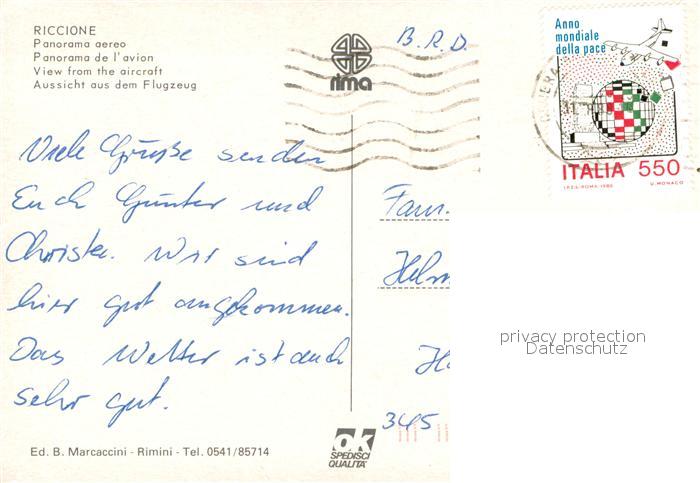 RICCIONE
Panorama aereo
Panorama de l'avion
View from the aircraft
Aussicht aus dem Flugzeug
rima
B.R.D.
Anno
mondiale
della pace
ITALIA 550
I.P.Z.S.-ROMA-1986
U. MONACO
Viele Grüße senden
Euch Günter und
Christa. Wir sind
hier gut angekommen.
Das Wetter ist auch
sehr gut.
Fam.
Helm
345
privacy protection
Datenschutz
ok
SPEDISCI
QUALITA'
Ed. B. Marcaccini - Rimini - Tel. 0541/85714